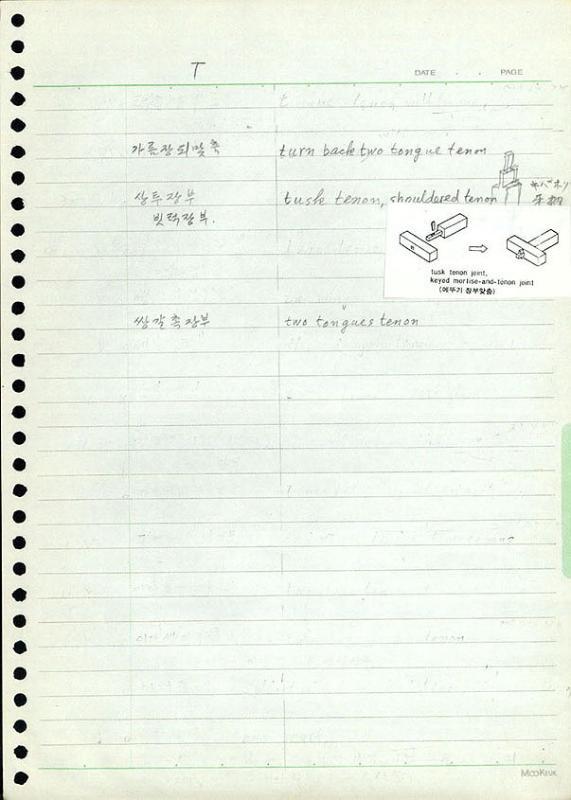 T
DATE . . PAGE
가름장되맞춤 turn back two tongue tenon
상투장부 tusk tenon, shouldered tenon
빗턱장부.
tusk tenon joint,
keyed mortise-and-tenon joint
(메뚜기 장부맞춤)
쌍갈촉장부 two tongues tenon
MOOKEUK